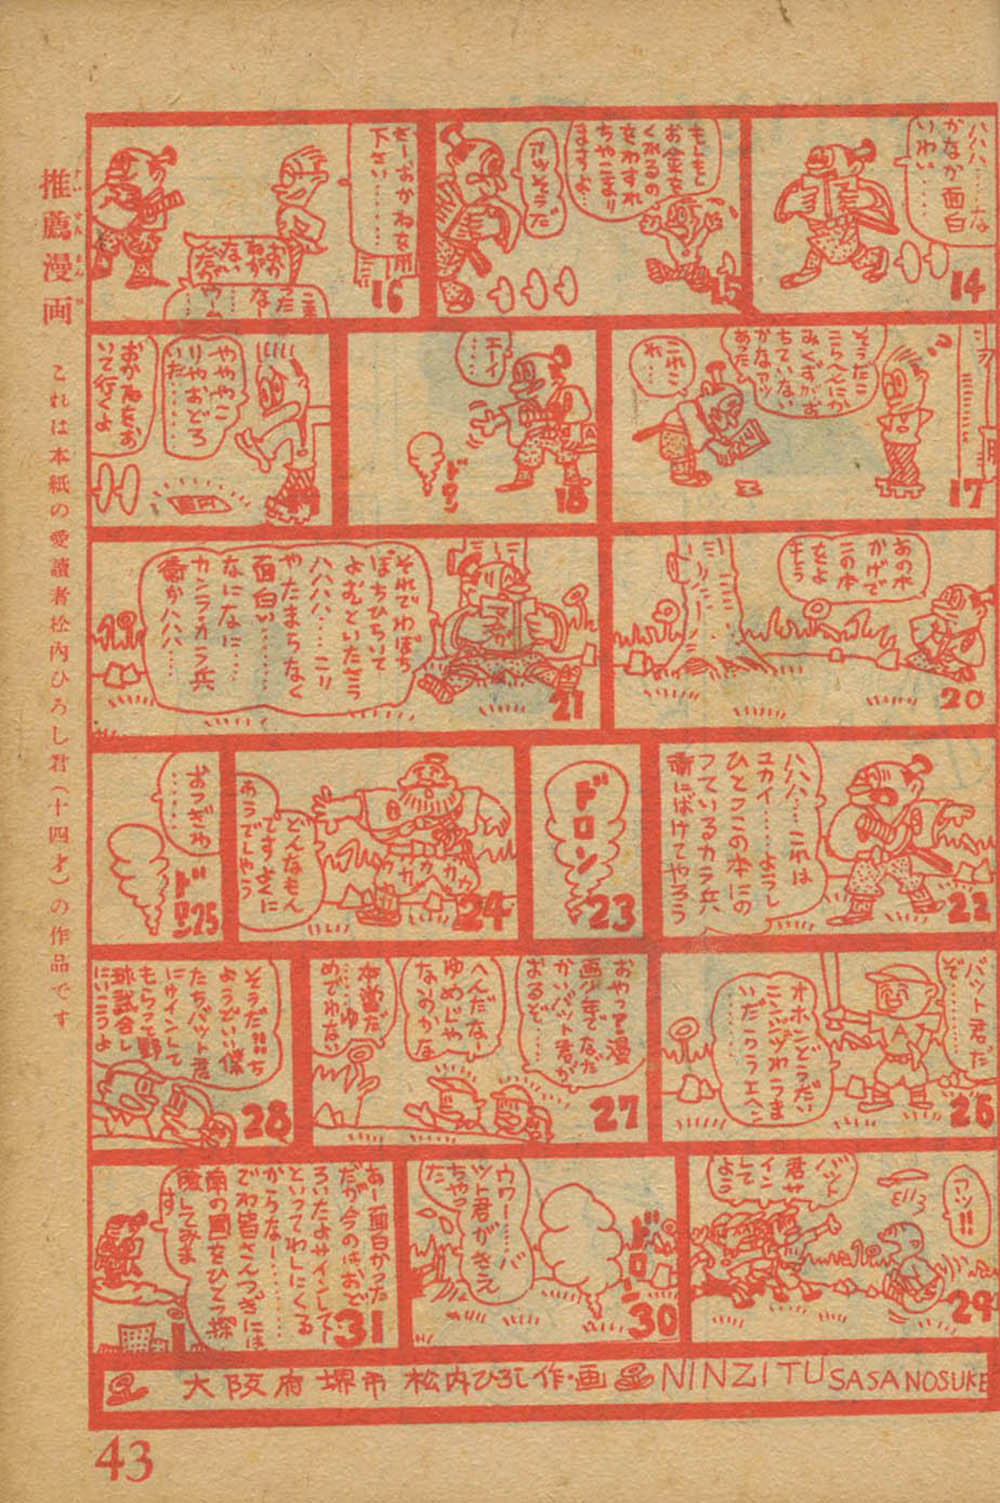 推薦漫画
これは本紙の愛讀者松内ひろし君(十四才)の作品です
ハハハ……な
かなか面白
いわい……
14
もしもし
お金を
くれるの
をわすれ
ちやこまり
ますよ…
アッそうだ
15
ぞーおかねを
下さい……
16
そうだこ
こらへんにか
みくずがお
ちていない
かなアッ
あった
これこ
れ…
17
エーイ
ドロン
18
やややこ
りやおどろ
いた……
おかねをお
いて行くよ
百円
あの木
かげで
この本
をよ
もう
20
それでわぼち
ぼちひちいて
よむといたそう
ハハハ……こり
やたまらなく
面白い……
なになに…
カンラ、カラ兵
衛かハハハ…
21
ハハハ…これは
ユカイ……ようし
ひとつこの本にの
つているカラ兵
衛にばけてやろう
22
ドロン
23
どんなもん
ですよくに
あうでしやう
24
おつぎわ
……
ドロン
25
バット君だ
ぞ………
オホンどうだい
ニンジツわうま
いだろうエヘン
26
おやつて漫
画少年でなだ
かいバット君が
おるぞ……
へんだなー
ゆめじや
ないかな
本當だ
……ゆ
めでわない
27
そうだ‼ち
ようどいい僕
たちバット君
にサインして
もらつて野
球試合し
にいこうよ
28
アッ‼
バット
君サ
イン
して
よう
29
ドロン
ウワー……バ
ット君がきえ
ちやつ
た
30
あー面白かった
だが今のはおど
ろいたよサインして下
といつてわしにくる
からなー………
でわ皆さんつぎには
南の国をひとつ探
険してみま

31
大阪府堺市 松内ひろし作・画 NINZITU SASANOSUKE
43